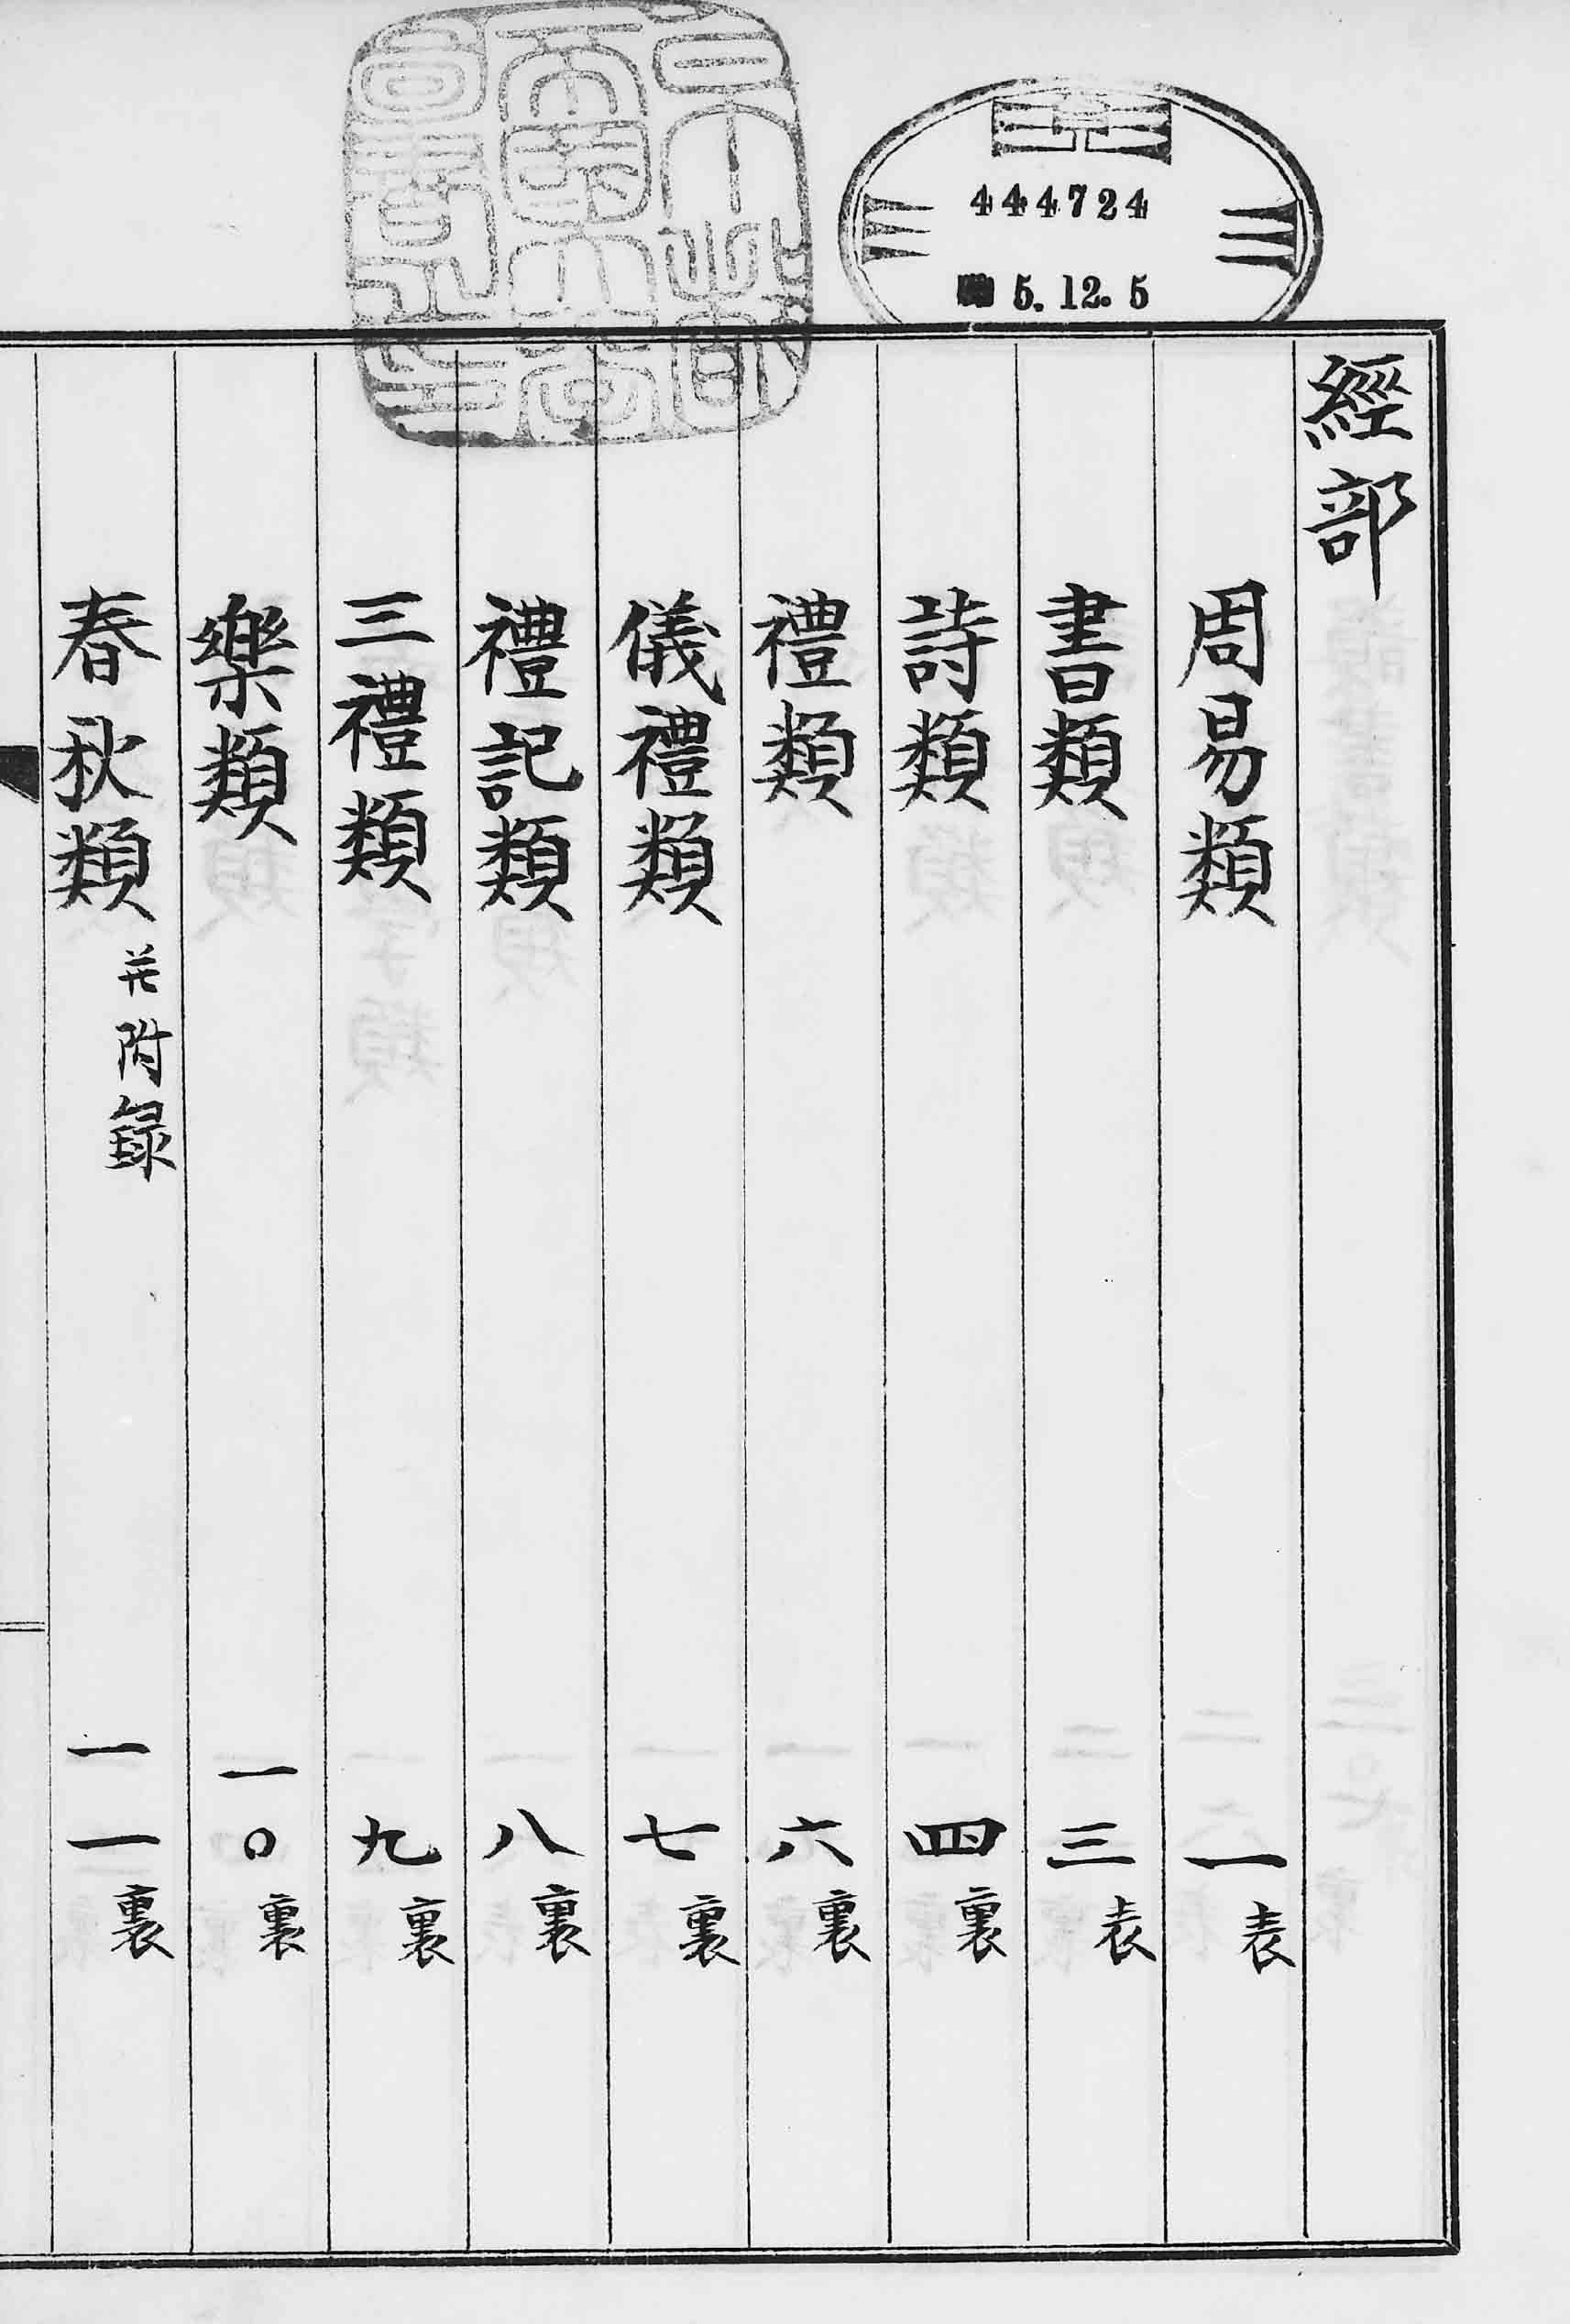 444724
5.12.5
經部
周易類 一表
書類 三表
詩類 四裏
禮類 六裏
儀禮類 七裏
禮記類 八裏
三禮類 九裏
樂類 一〇裏
春秋類 并附録 一一裏